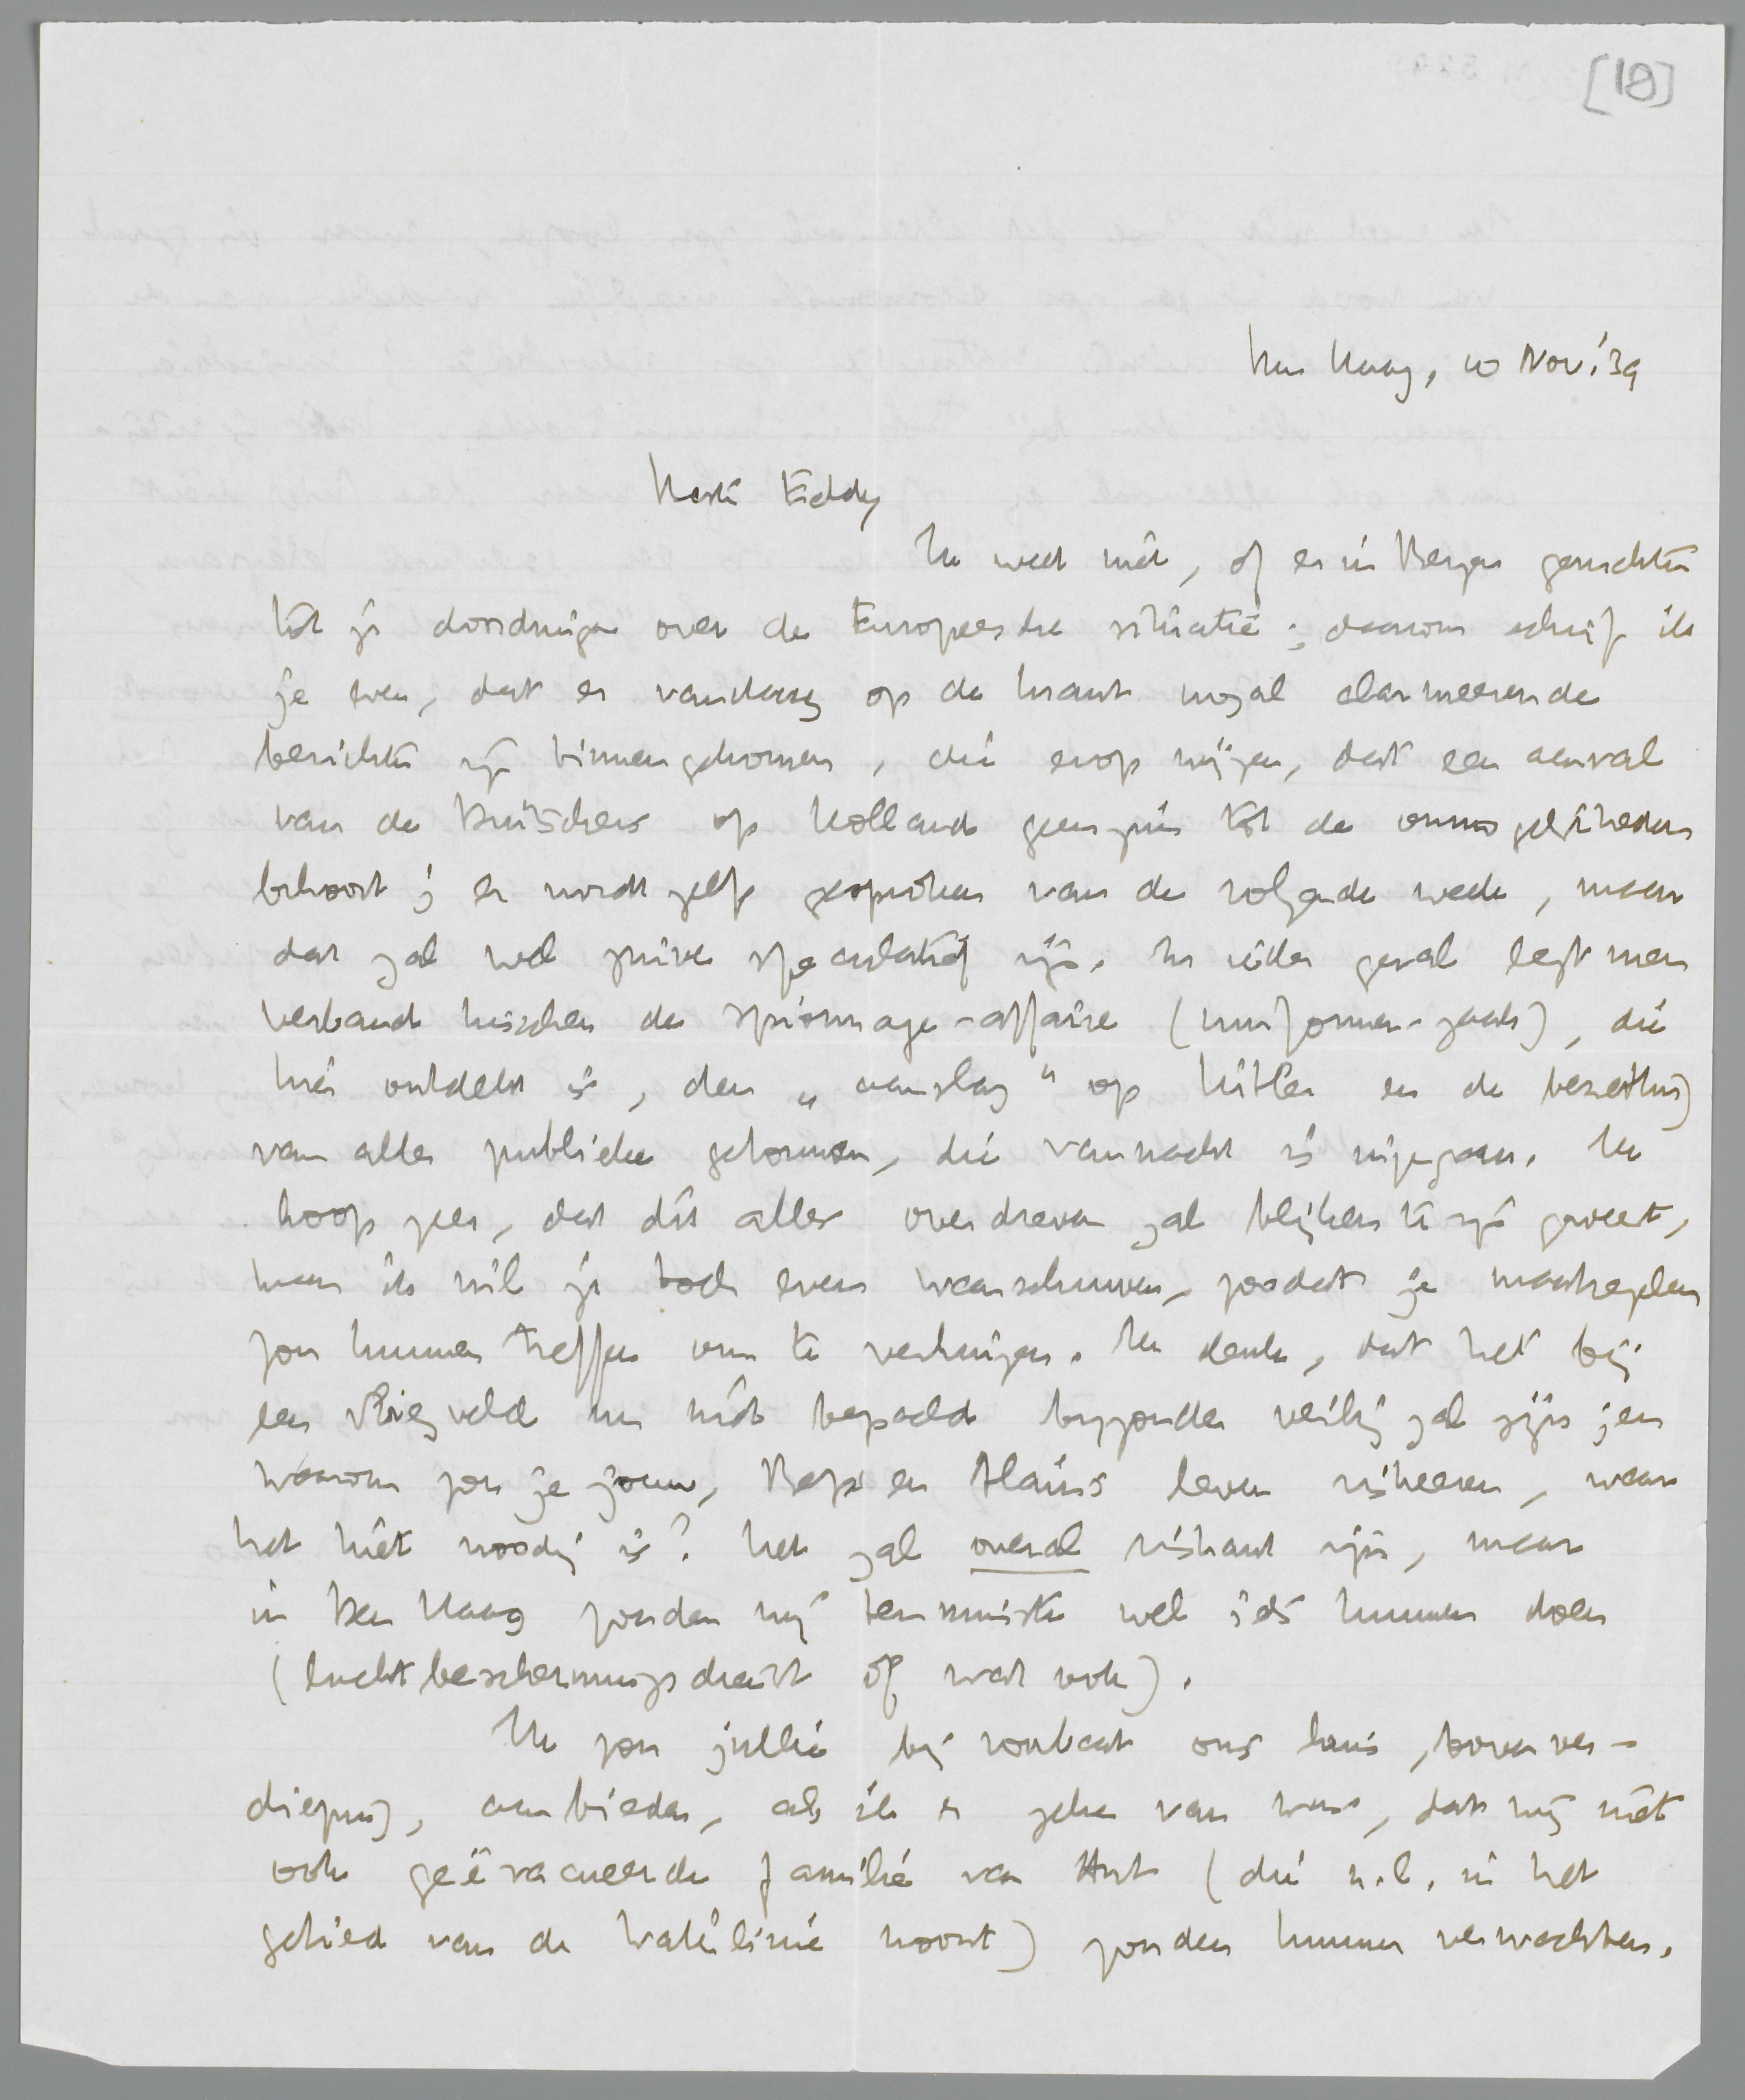 [18]
Den Haag, 10 Nov. '39
Beste Eddy
Ik weet niet, of er in Bergen geruchten
tot je doordringen over de Europeesche situatie; daarom schrijf ik
je even, dat er vandaag op de krant nogal alarmeerende
berichten zijn binnengekomen, die erop wijzen, dat een aanval
van de Duitschers op Holland geenszins tot de onmogelijkheden
behoort; er wordt zelfs gesproken van de volgende week, maar
dat zal wel zuiver speculatief zijn. In ieder geval legt men
verband tusschen de spionnage-affaire (uniformen-zaak), die
hier ontdekt is, den „aanslag" op Hitler en de bezetting
van alle publieke gebouwen, die vannacht is ingegaan. Ik
hoop zeer, dat dit alles overdreven zal blijken te zijn geweest,
maar ik wil je toch even waarschuwen, zoodat je maatregelen
zou kunnen treffen om te verhuizen. Ik denk, dat het bij
een vliegveld nu niet bepaald bijzonder veilig zal zijn; en
waarom zou je jouw, Bep's en Alain's leven riskeeren, waar
het niet noodig is? Het zal overal riskant zijn, maar
in Den Haag zouden wij tenminste wel iets kunnen doen
(luchtbeschermingsdienst of wat ook).
Ik zou jullie bij voorbaat ons huis, bovenver-
dieping, aanbieden, als ik er zeker van was, dat wij niet
ook geëvacueerde familie van Ant (die n.l. in het
gebied van de waterlinie woont) zouden kunnen verwachten.